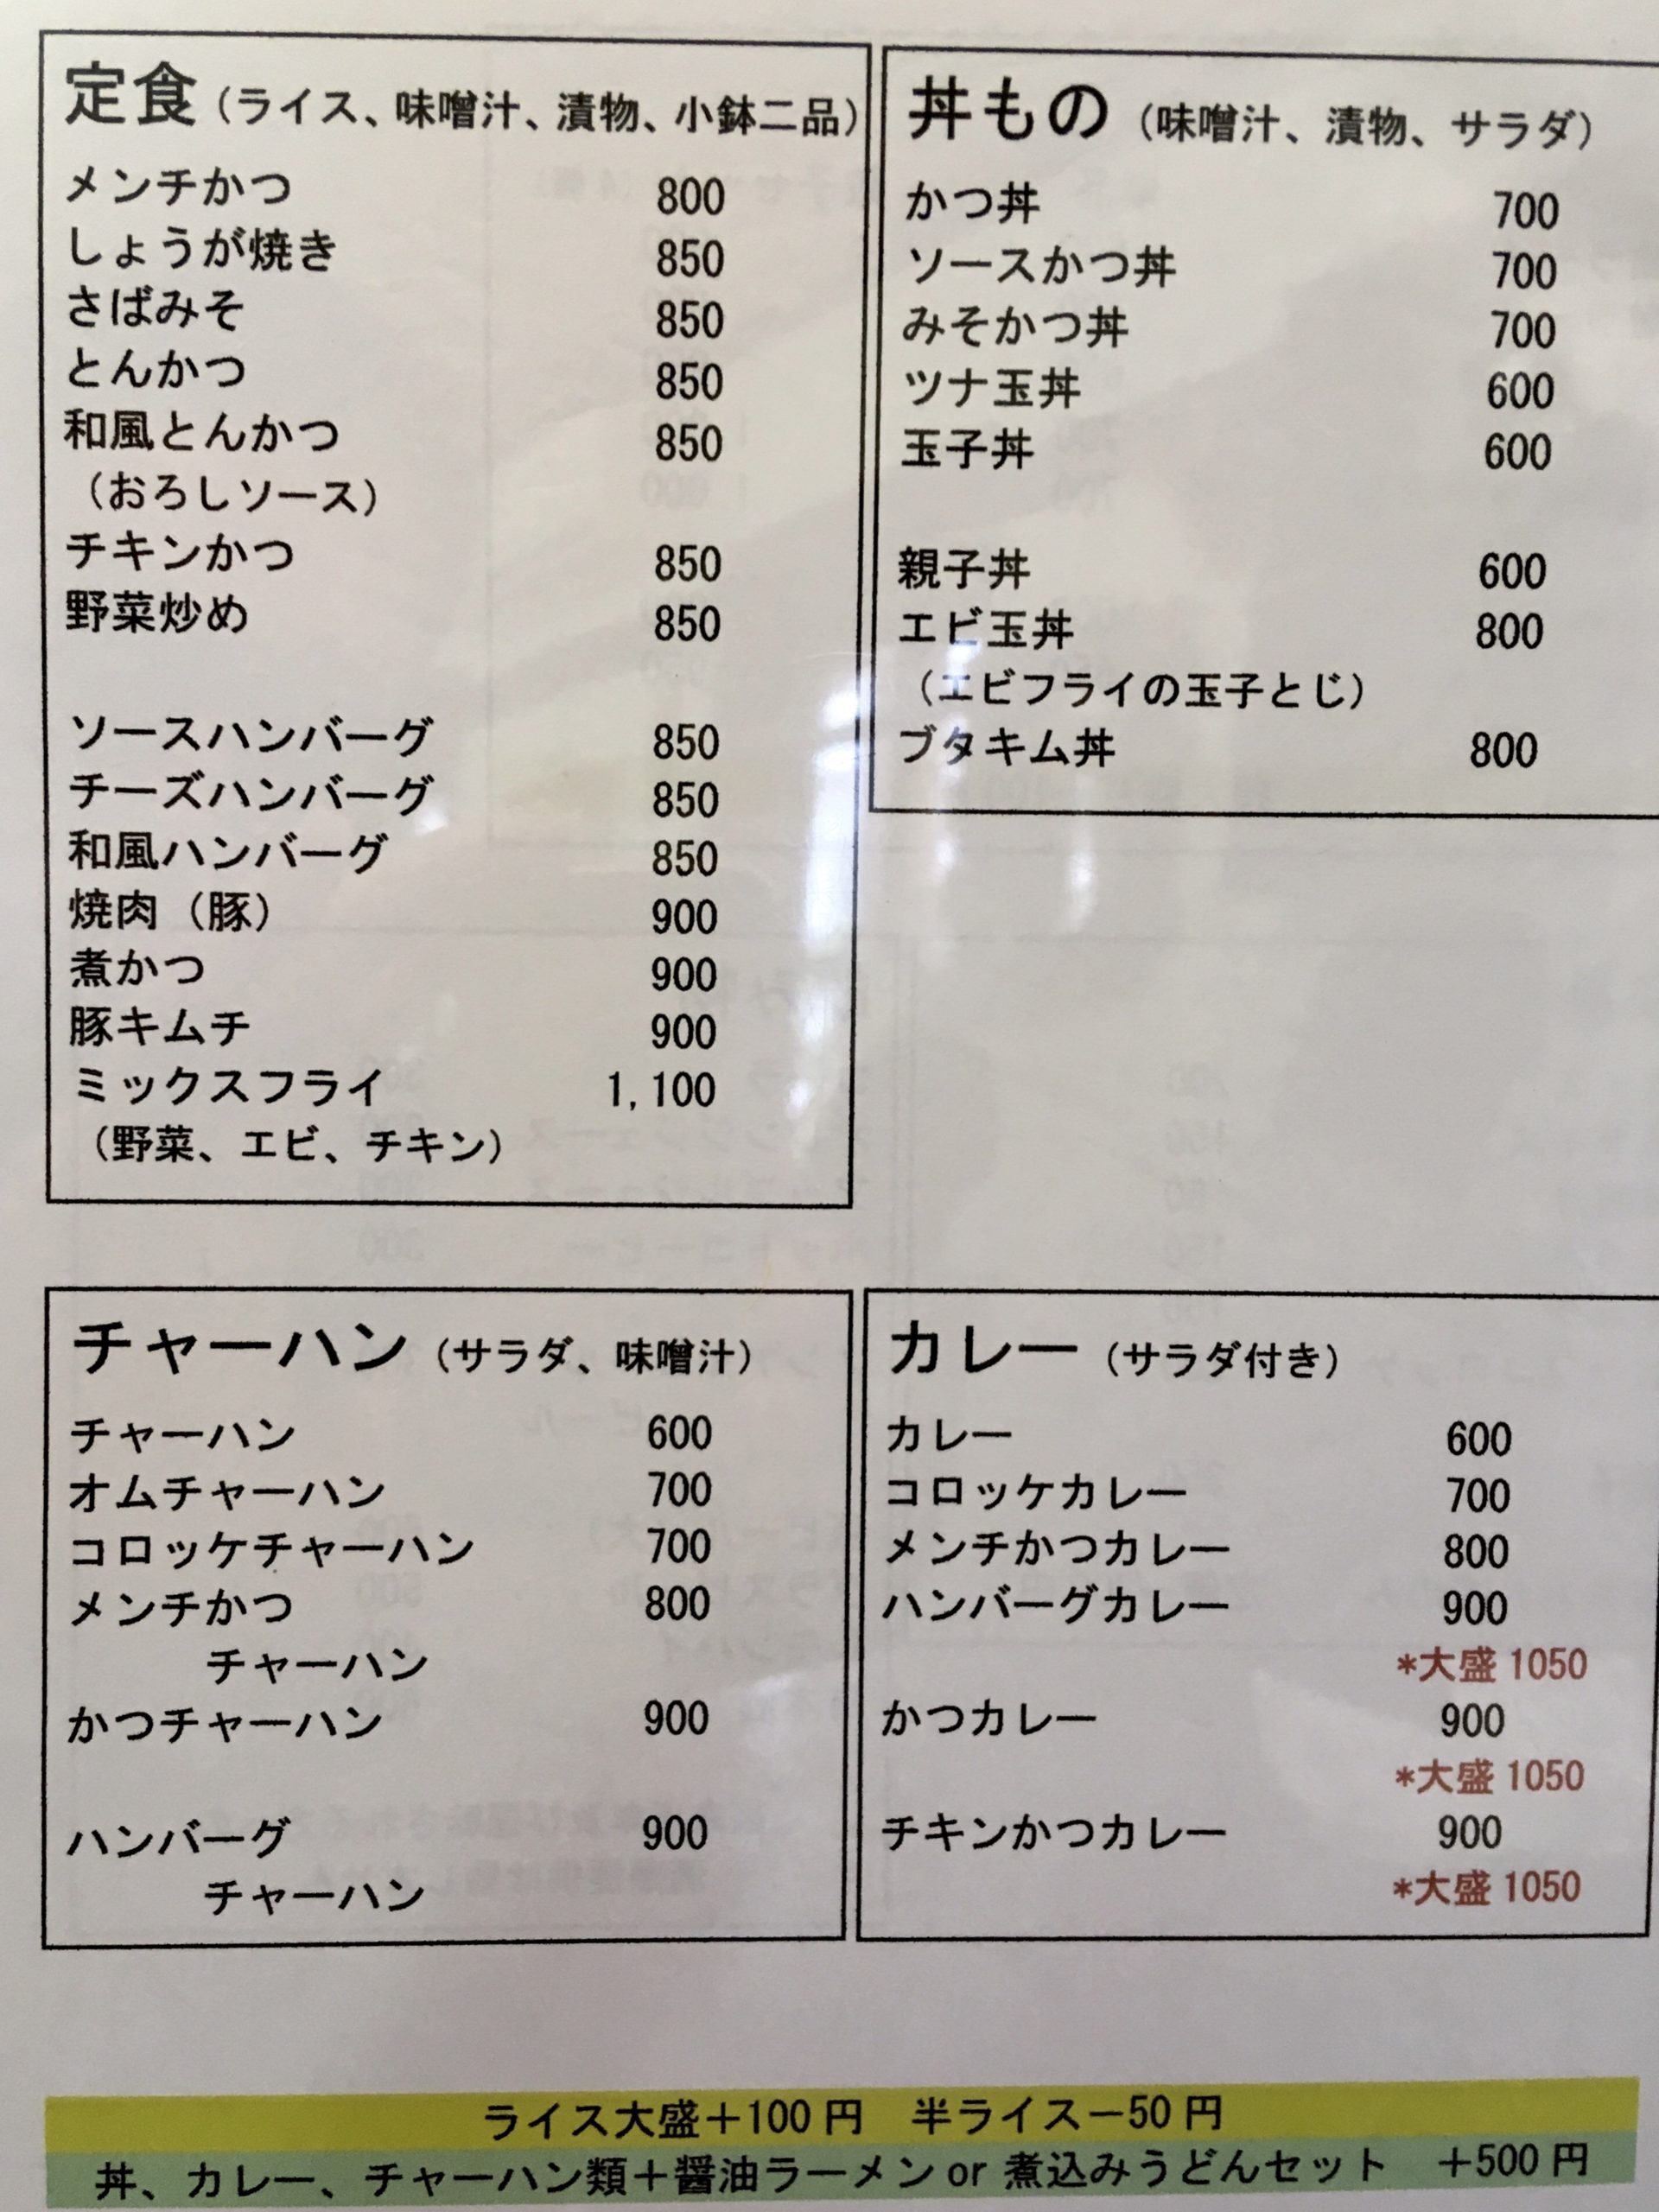 定食(ライス、味噌汁、漬物、小鉢二品)
メンチかつ 800
しょうが焼き 850
さばみそ 850
とんかつ 850
和風とんかつ 850
(おろしソース)
チキンかつ 850
野菜炒め 850
ソースハンバーグ 850
チーズハンバーグ 850
和風ハンバーグ 850
焼肉(豚) 900
煮かつ 900
豚キムチ 900
ミックスフライ 1,100
(野菜、エビ、チキン)
丼もの(味噌汁、漬物、サラダ)
かつ丼 700
ソースかつ丼 700
みそかつ丼 700
ツナ玉丼 600
玉子丼 600
親子丼 600
エビ玉丼 800
(エビフライの玉子とじ)
ブタキム丼 800
チャーハン(サラダ、味噌汁)
チャーハン 600
オムチャーハン 700
コロッケチャーハン 700
メンチかつ 800
チャーハン
かつチャーハン 900
ハンバーグ 900
チャーハン
カレー(サラダ付き)
カレー 600
コロッケカレー 700
メンチかつカレー 800
ハンバーグカレー 900
*大盛1050
かつカレー 900
*大盛1050
チキンかつカレー 900
*大盛1050
ライス大盛+100円 半ライス−50円
丼、カレー、チャーハン類+醤油ラーメンor煮込みうどんセット +500円